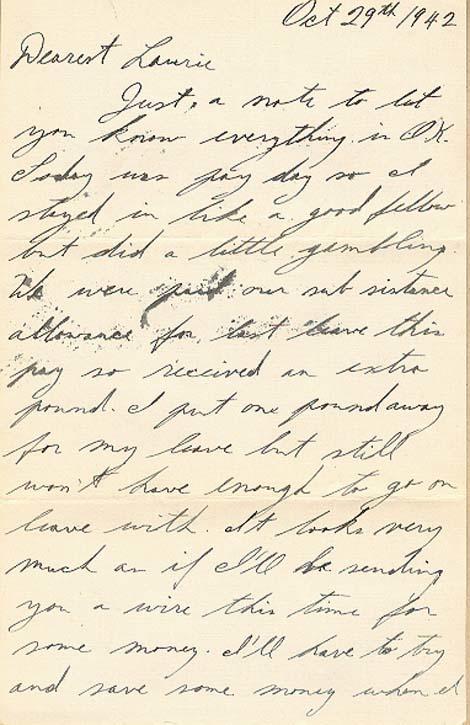 Oct 29th/1942
Dearest Laurie
Just a note to let
you know everything is OK.
Today was pay day so I
stayed in like a good fellow
but did a little gambling.
We were paid our subsistance
allowance for last leave this
pay so received an extra
pound. I put one pound away
for my leave but still
won't have enough to go on
leave with. It looks very
much as if I'll be sending
you a wire this time for
some money. I'll have to try
and save some money when I